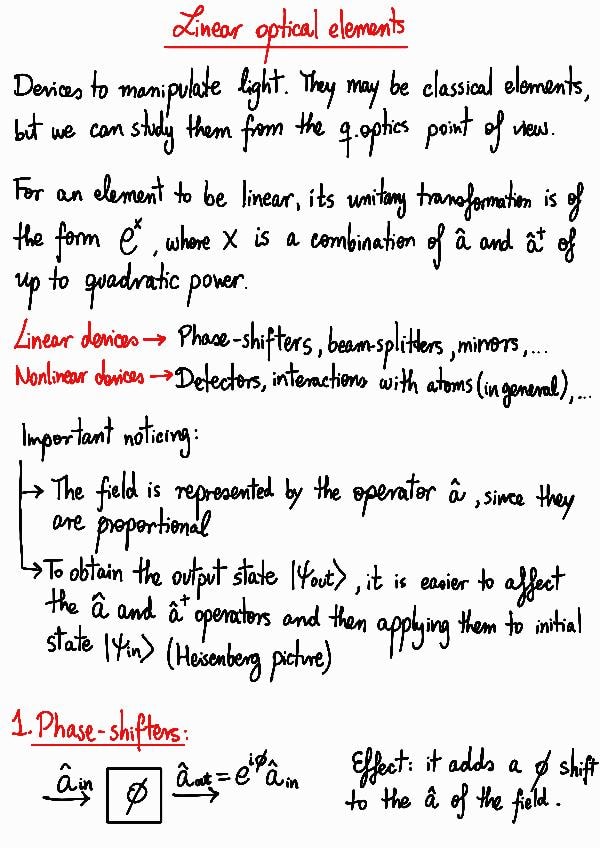 Linear optical elements
Devices to manipulate light. They may be classical elements,
but we can study them from the q.optics point of view.
For an element to be linear, its unitary transformation is of
the form eˣ, where X is a combination of â and â† of
up to quadratic power.
Linear devices → Phase-shifters, beam-splitters, mirrors,...
Nonlinear devices → Detectors, interactions with atoms (in general),...
Important noticing:
→ The field is represented by the operator â, since they
are proportional
→ To obtain the output state |Ψout⟩, it is easier to affect
the â and â† operators and then applying them to initial
state |Ψin⟩ (Heisenberg picture)
1. Phase-shifters:
âin → ϕ → âout = e^{iϕ} âin
Effect: it adds a ϕ shift
to the â of the field.